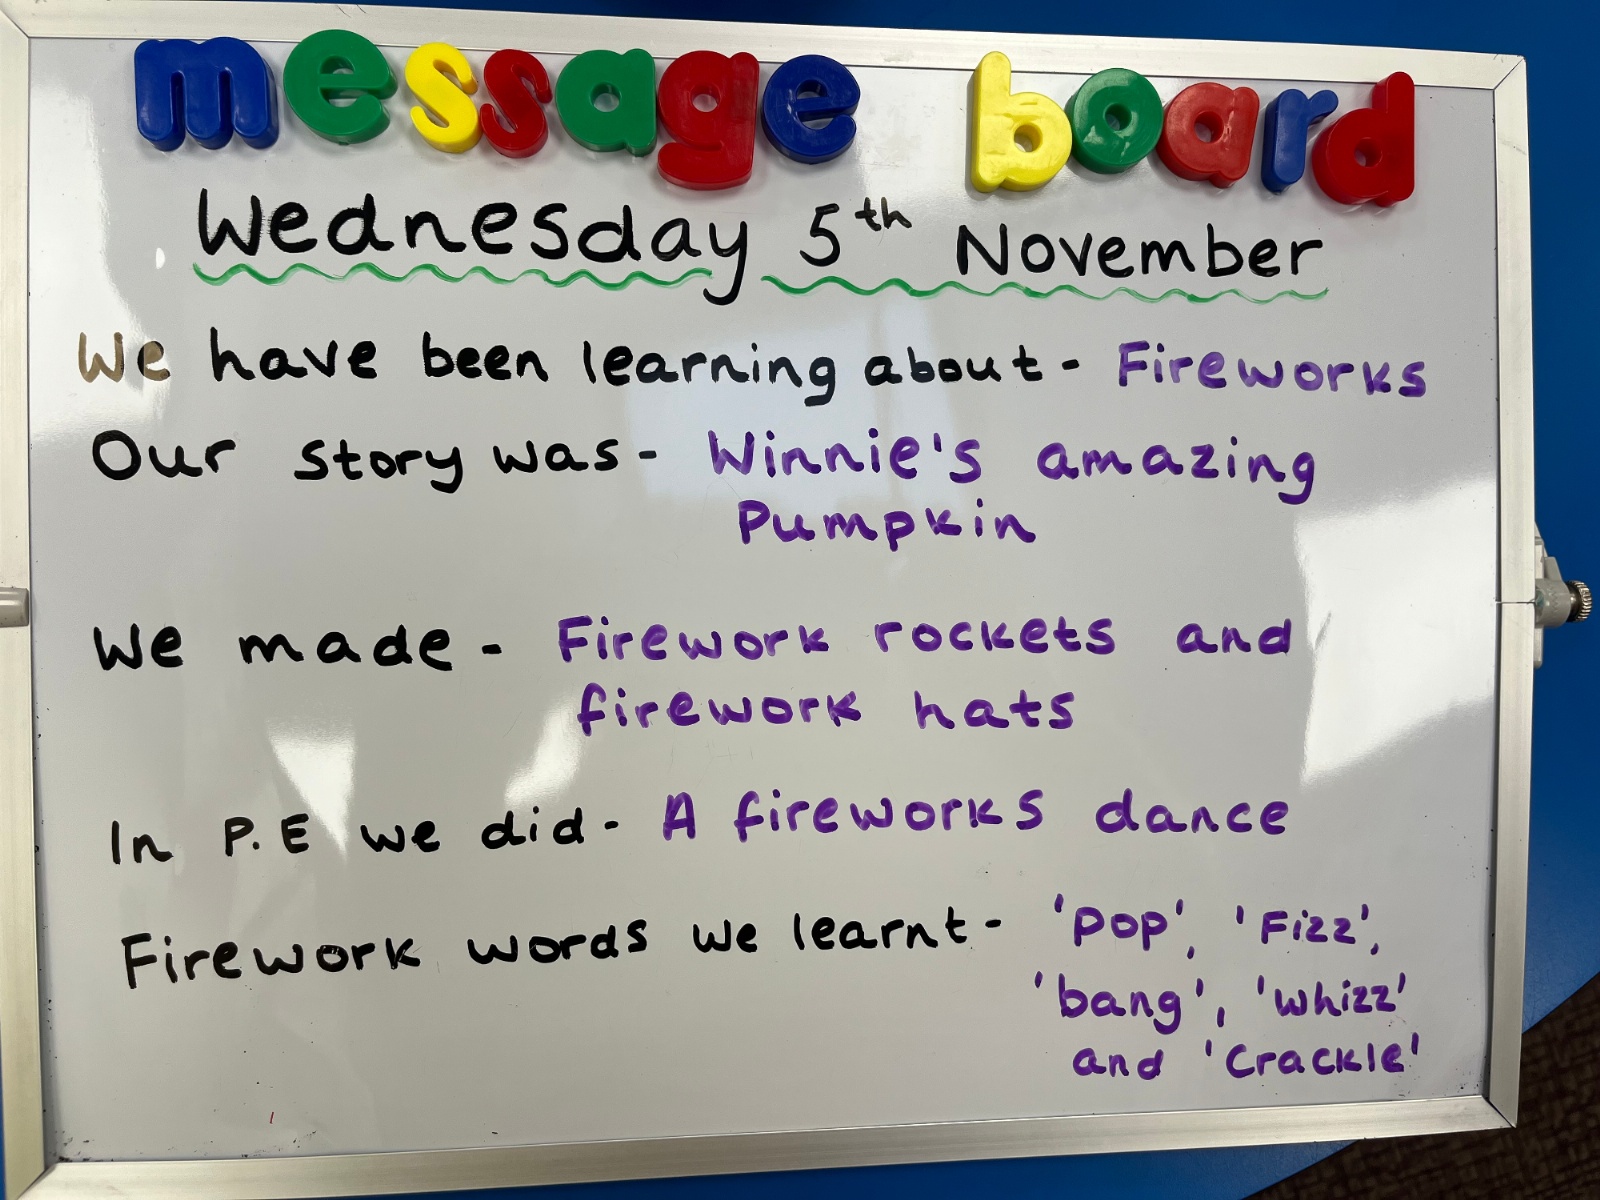 message board
Wednesday 5th November
We have been learning about - Fireworks
Our story was - Winnie's amazing
Pumpkin
We made - Firework rockets and
firework hats
In P.E we did - A fireworks dance
Firework words we learnt - 'Pop', 'Fizz',
'bang', 'whizz'
and 'Crackle'